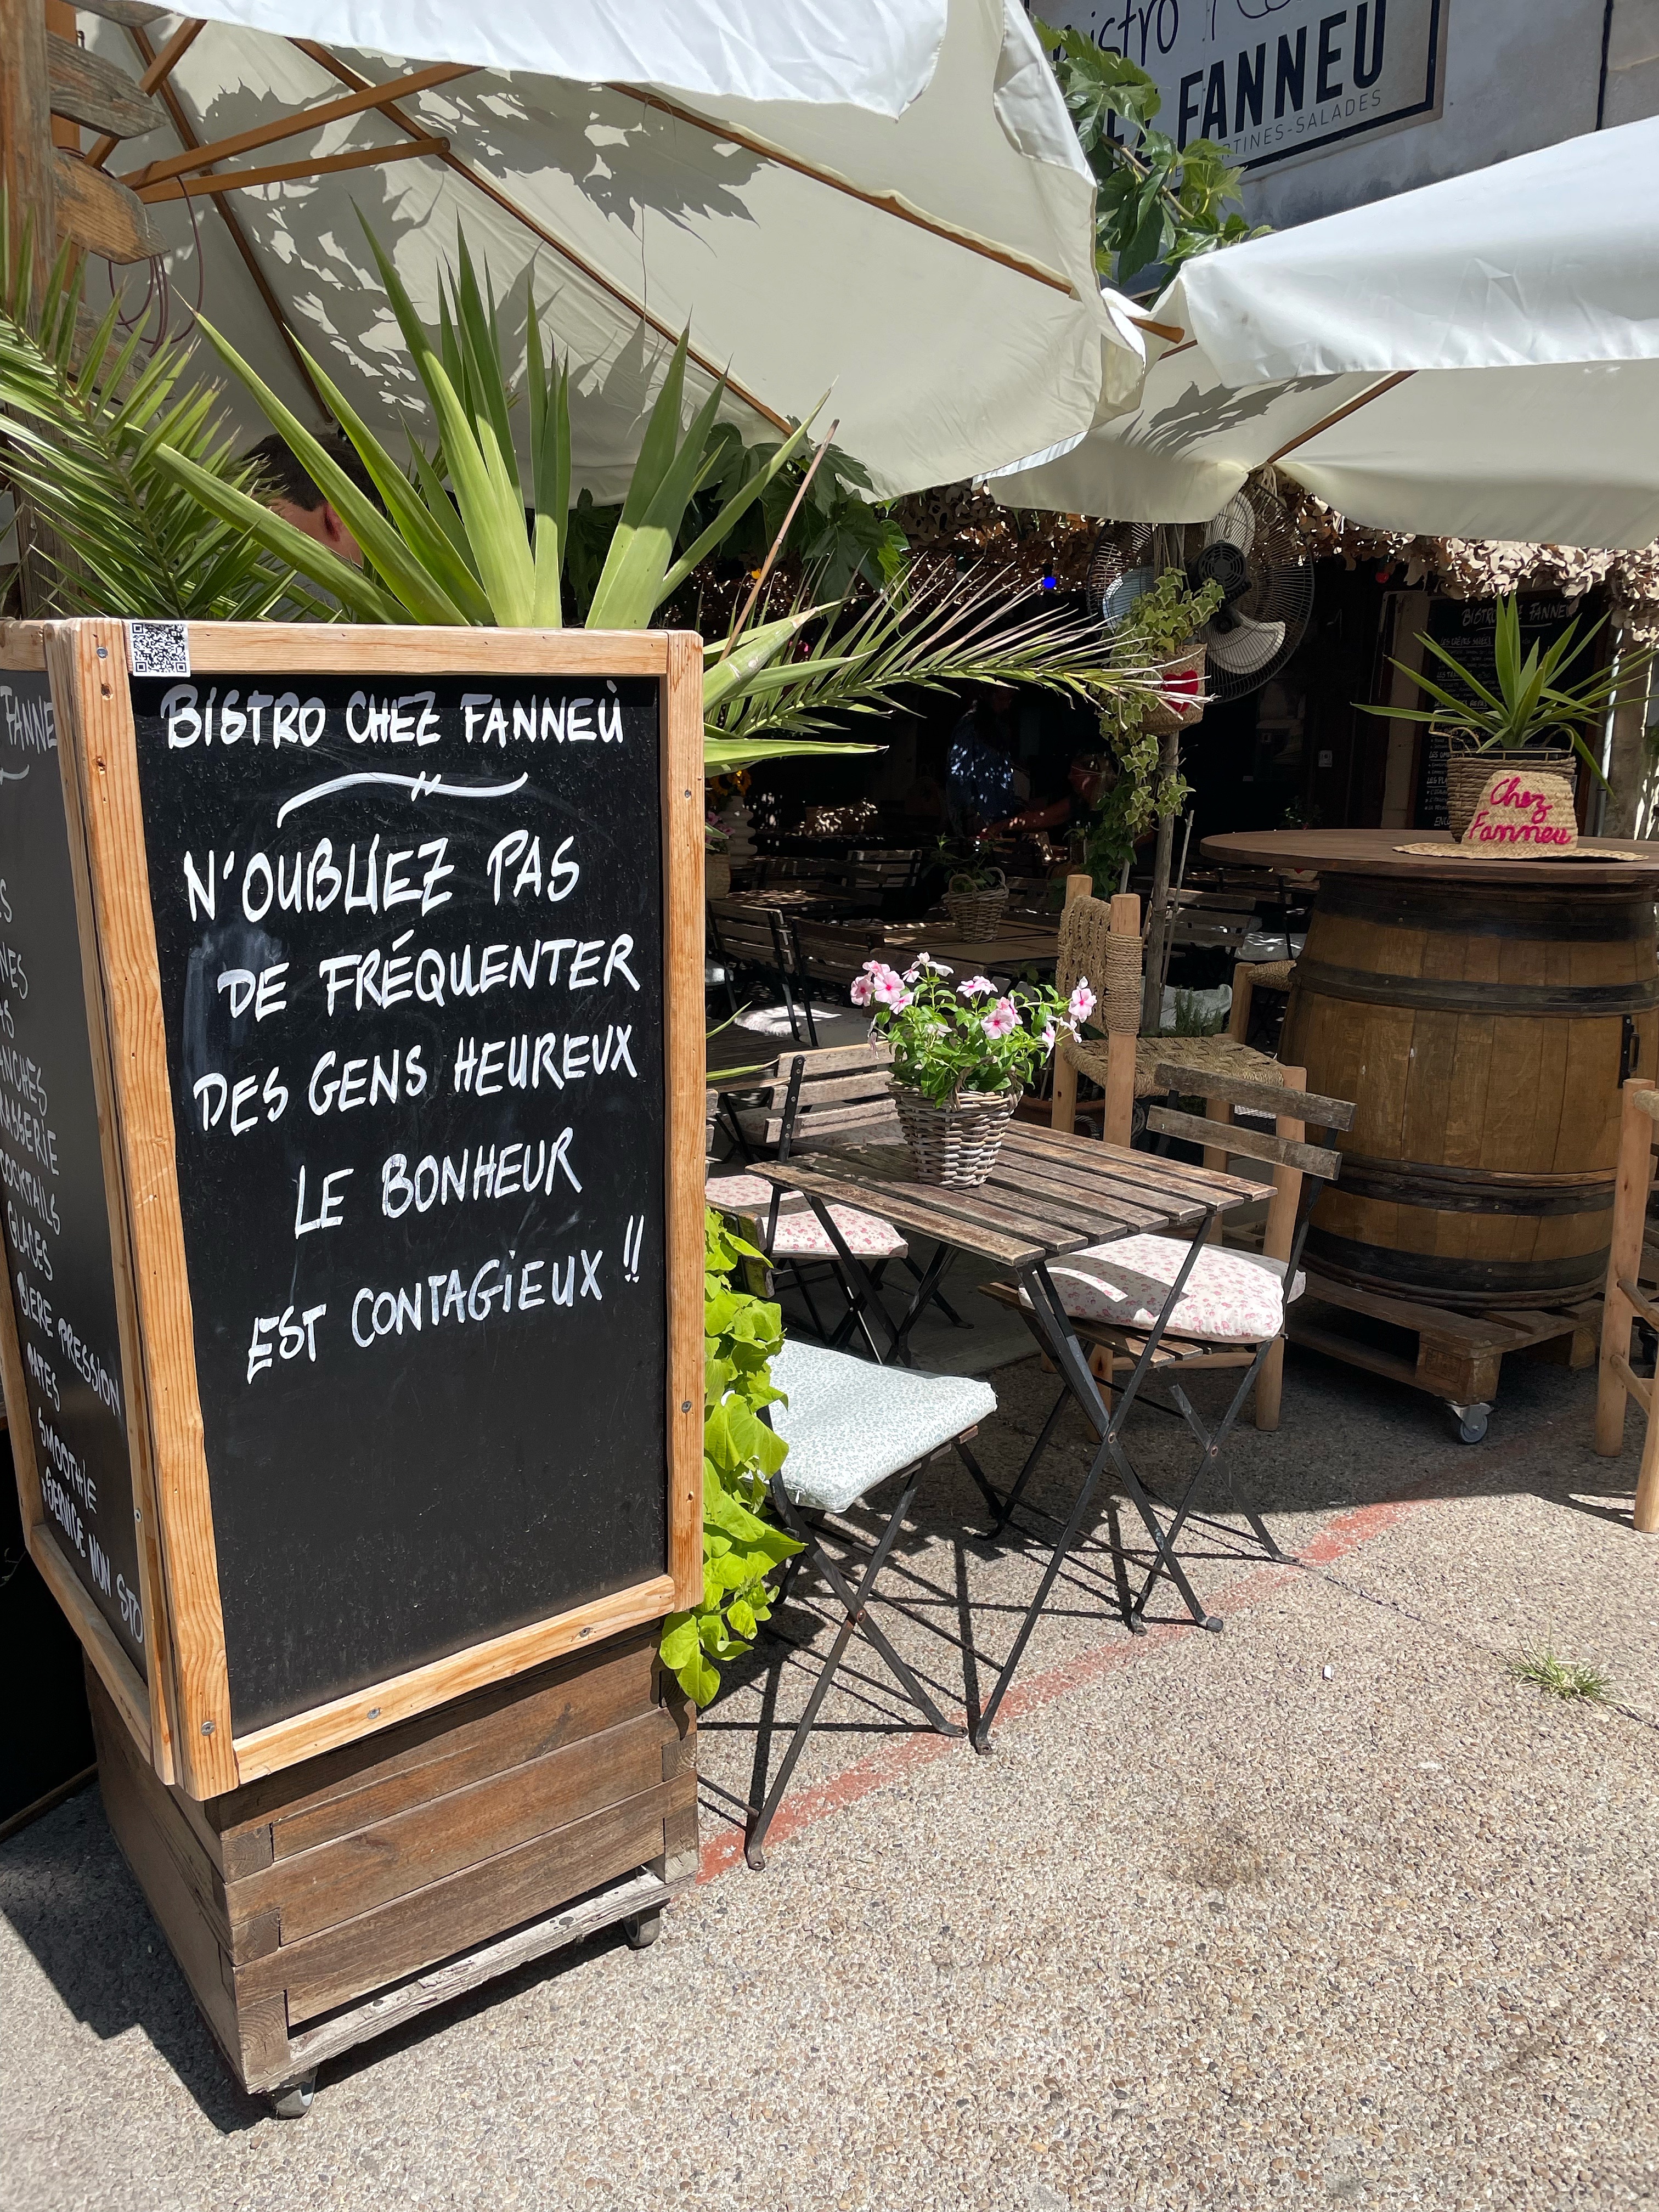 istro
FANNEU
RTINES-SALADES
BISTRO CHEZ FANNEÙ
N'OUBLIEZ PAS
DE FRÉQUENTER
DES GENS HEUREUX
LE BONHEUR
EST CONTAGIEUX !!
FANNE
S
NES
AS
ANCHES
RASSERIE
COCKTAILS
GLACES
BIERE PRESSION
PATES
SMOOTHIE
SERVICE NON STO
BISTRO FANNEU
Chez
Fanneu